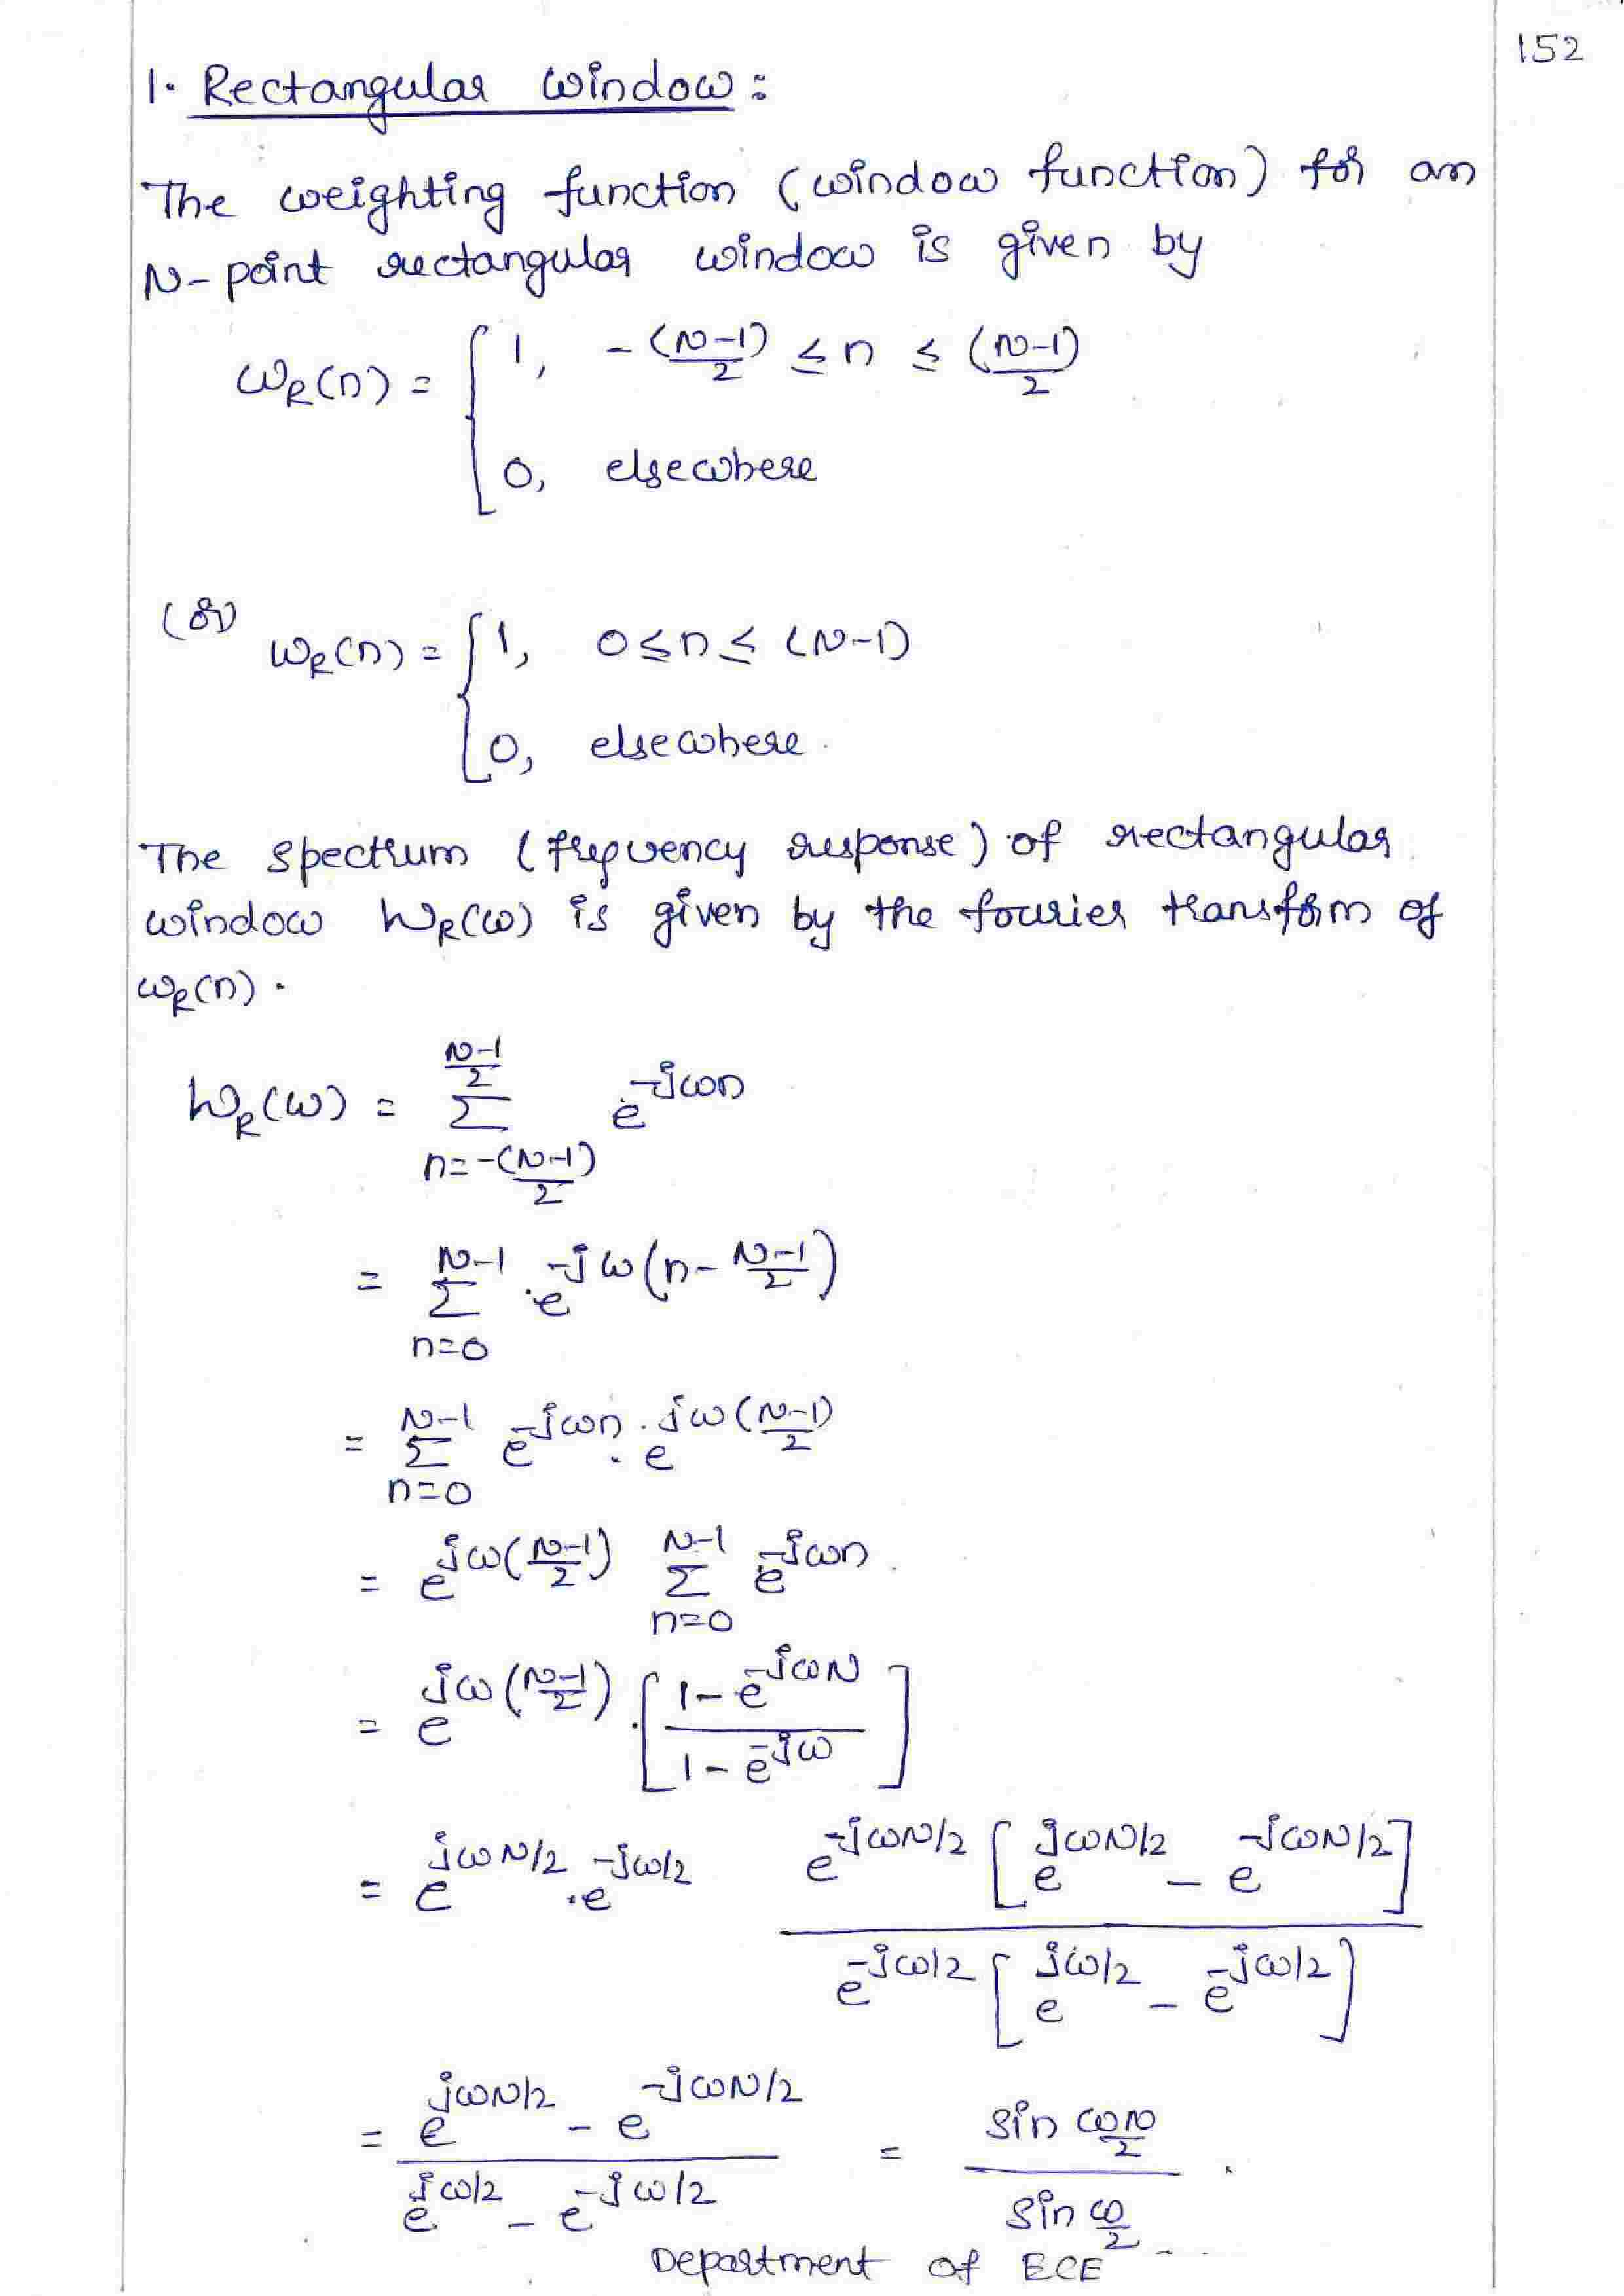 152
1. Rectangular window:
The weighting function (window function) for an
N-point rectangular window is given by
ω_R(n) = { 1, -(N-1)/2 ≤ n ≤ (N-1)/2
0, elsewhere
(or) ω_R(n) = { 1, 0 ≤ n ≤ (N-1)
0, elsewhere.
The spectrum (frequency response) of rectangular
window W_R(ω) is given by the fourier transform of
ω_R(n).
W_R(ω) = Σ_{n=-(N-1)/2}^{(N-1)/2} e^{-jωn}
= Σ_{n=0}^{N-1} e^{-jω(n - (N-1)/2)}
= Σ_{n=0}^{N-1} e^{-jωn} . e^{jω((N-1)/2)}
= e^{jω((N-1)/2)} Σ_{n=0}^{N-1} e^{-jωn}
= e^{jω((N-1)/2)} . [ (1 - e^{-jωN}) / (1 - e^{-jω}) ]
= e^{jωN/2} . e^{-jω/2} e^{-jωN/2} [ e^{jωN/2} - e^{-jωN/2} ] / e^{-jω/2} [ e^{jω/2} - e^{-jω/2} ]
= (e^{jωN/2} - e^{-jωN/2}) / (e^{jω/2} - e^{-jω/2}) = (sin ωN/2) / (sin ω/2) .
Department of ECE